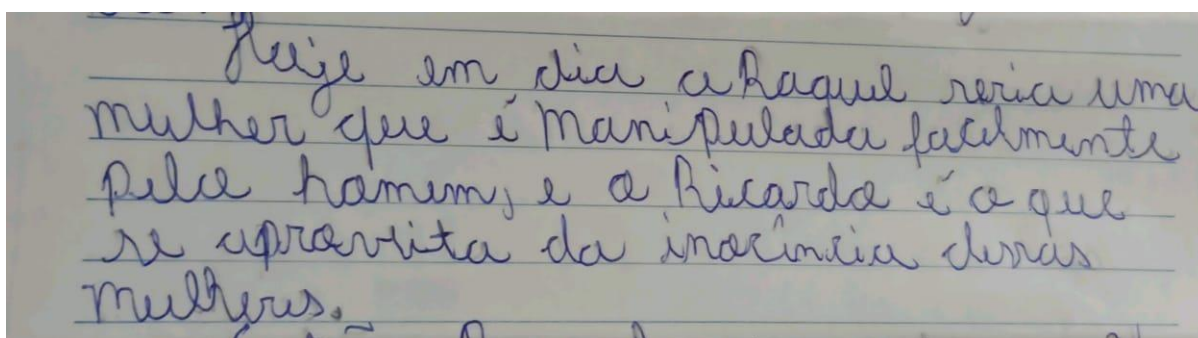 Hoje em dia a Raquel seria uma
mulher que é manipulada facilmente
pelo homem, e o Ricardo é o que
se aproveita da inocência dessas
mulheres.